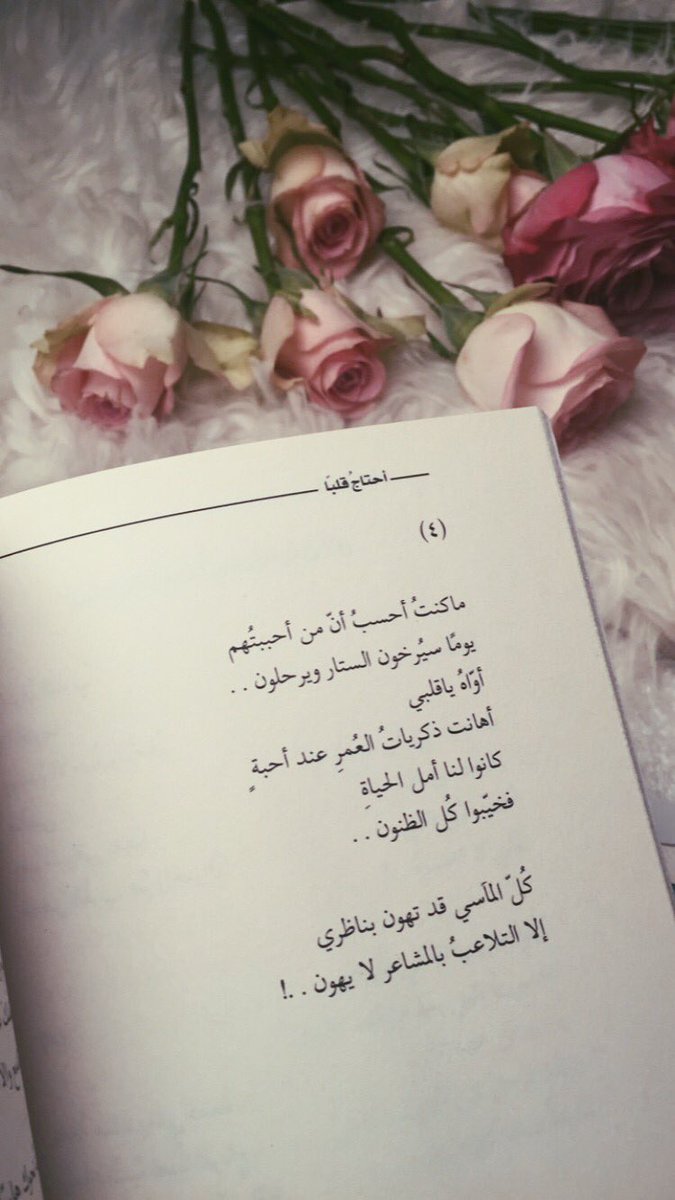 أحتاجُ قلبًا
(٤)
ماكنتُ أحسبُ أنّ من أحببتُهم
يومًا سيُرخون الستار ويرحلون . .
أوّاهُ ياقلبي
أهانت ذكرياتُ العُمرِ عند أحبةٍ
كانوا لنا أمل الحياةِ
فخيّبوا كُل الظنون . .
كُلّ المآسي قد تهون بناظري
إلا التلاعبُ بالمشاعر لا يهون . .!